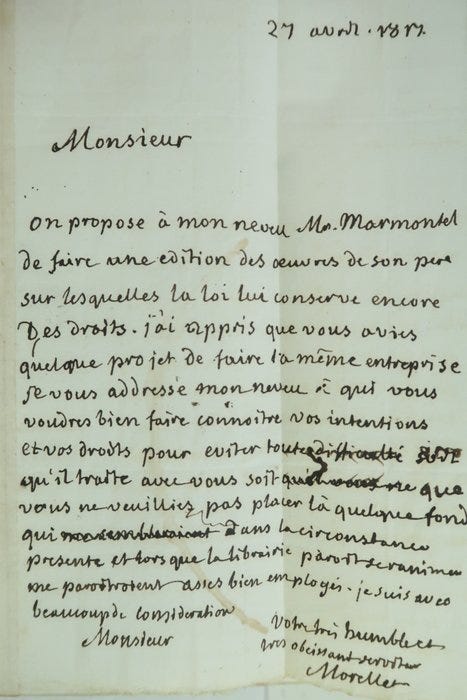 27 avril. 1817.
Monsieur
On propose à mon neveu Mr. Marmontel
de faire une edition des œuvres de son pere
sur lesquelles la loi lui conserve encore
Des droits. j'ai appris que vous avies
quelque projet de faire la même entreprise
je vous addresse mon neveu à qui vous
voudres bien faire connoître vos intentions
et vos droits pour eviter toute difficulté soit
qu'il traite avec vous soit que
vous ne veuilliez pas placer là quelque fond
qui dans la circonstance
presente et lorsque la librairie paroit se ranimer
me paroitroient asses bien employés. je suis avec
beaucoup de consideration
Monsieur
votre très humble et
tres obeissant serviteur
Morellet